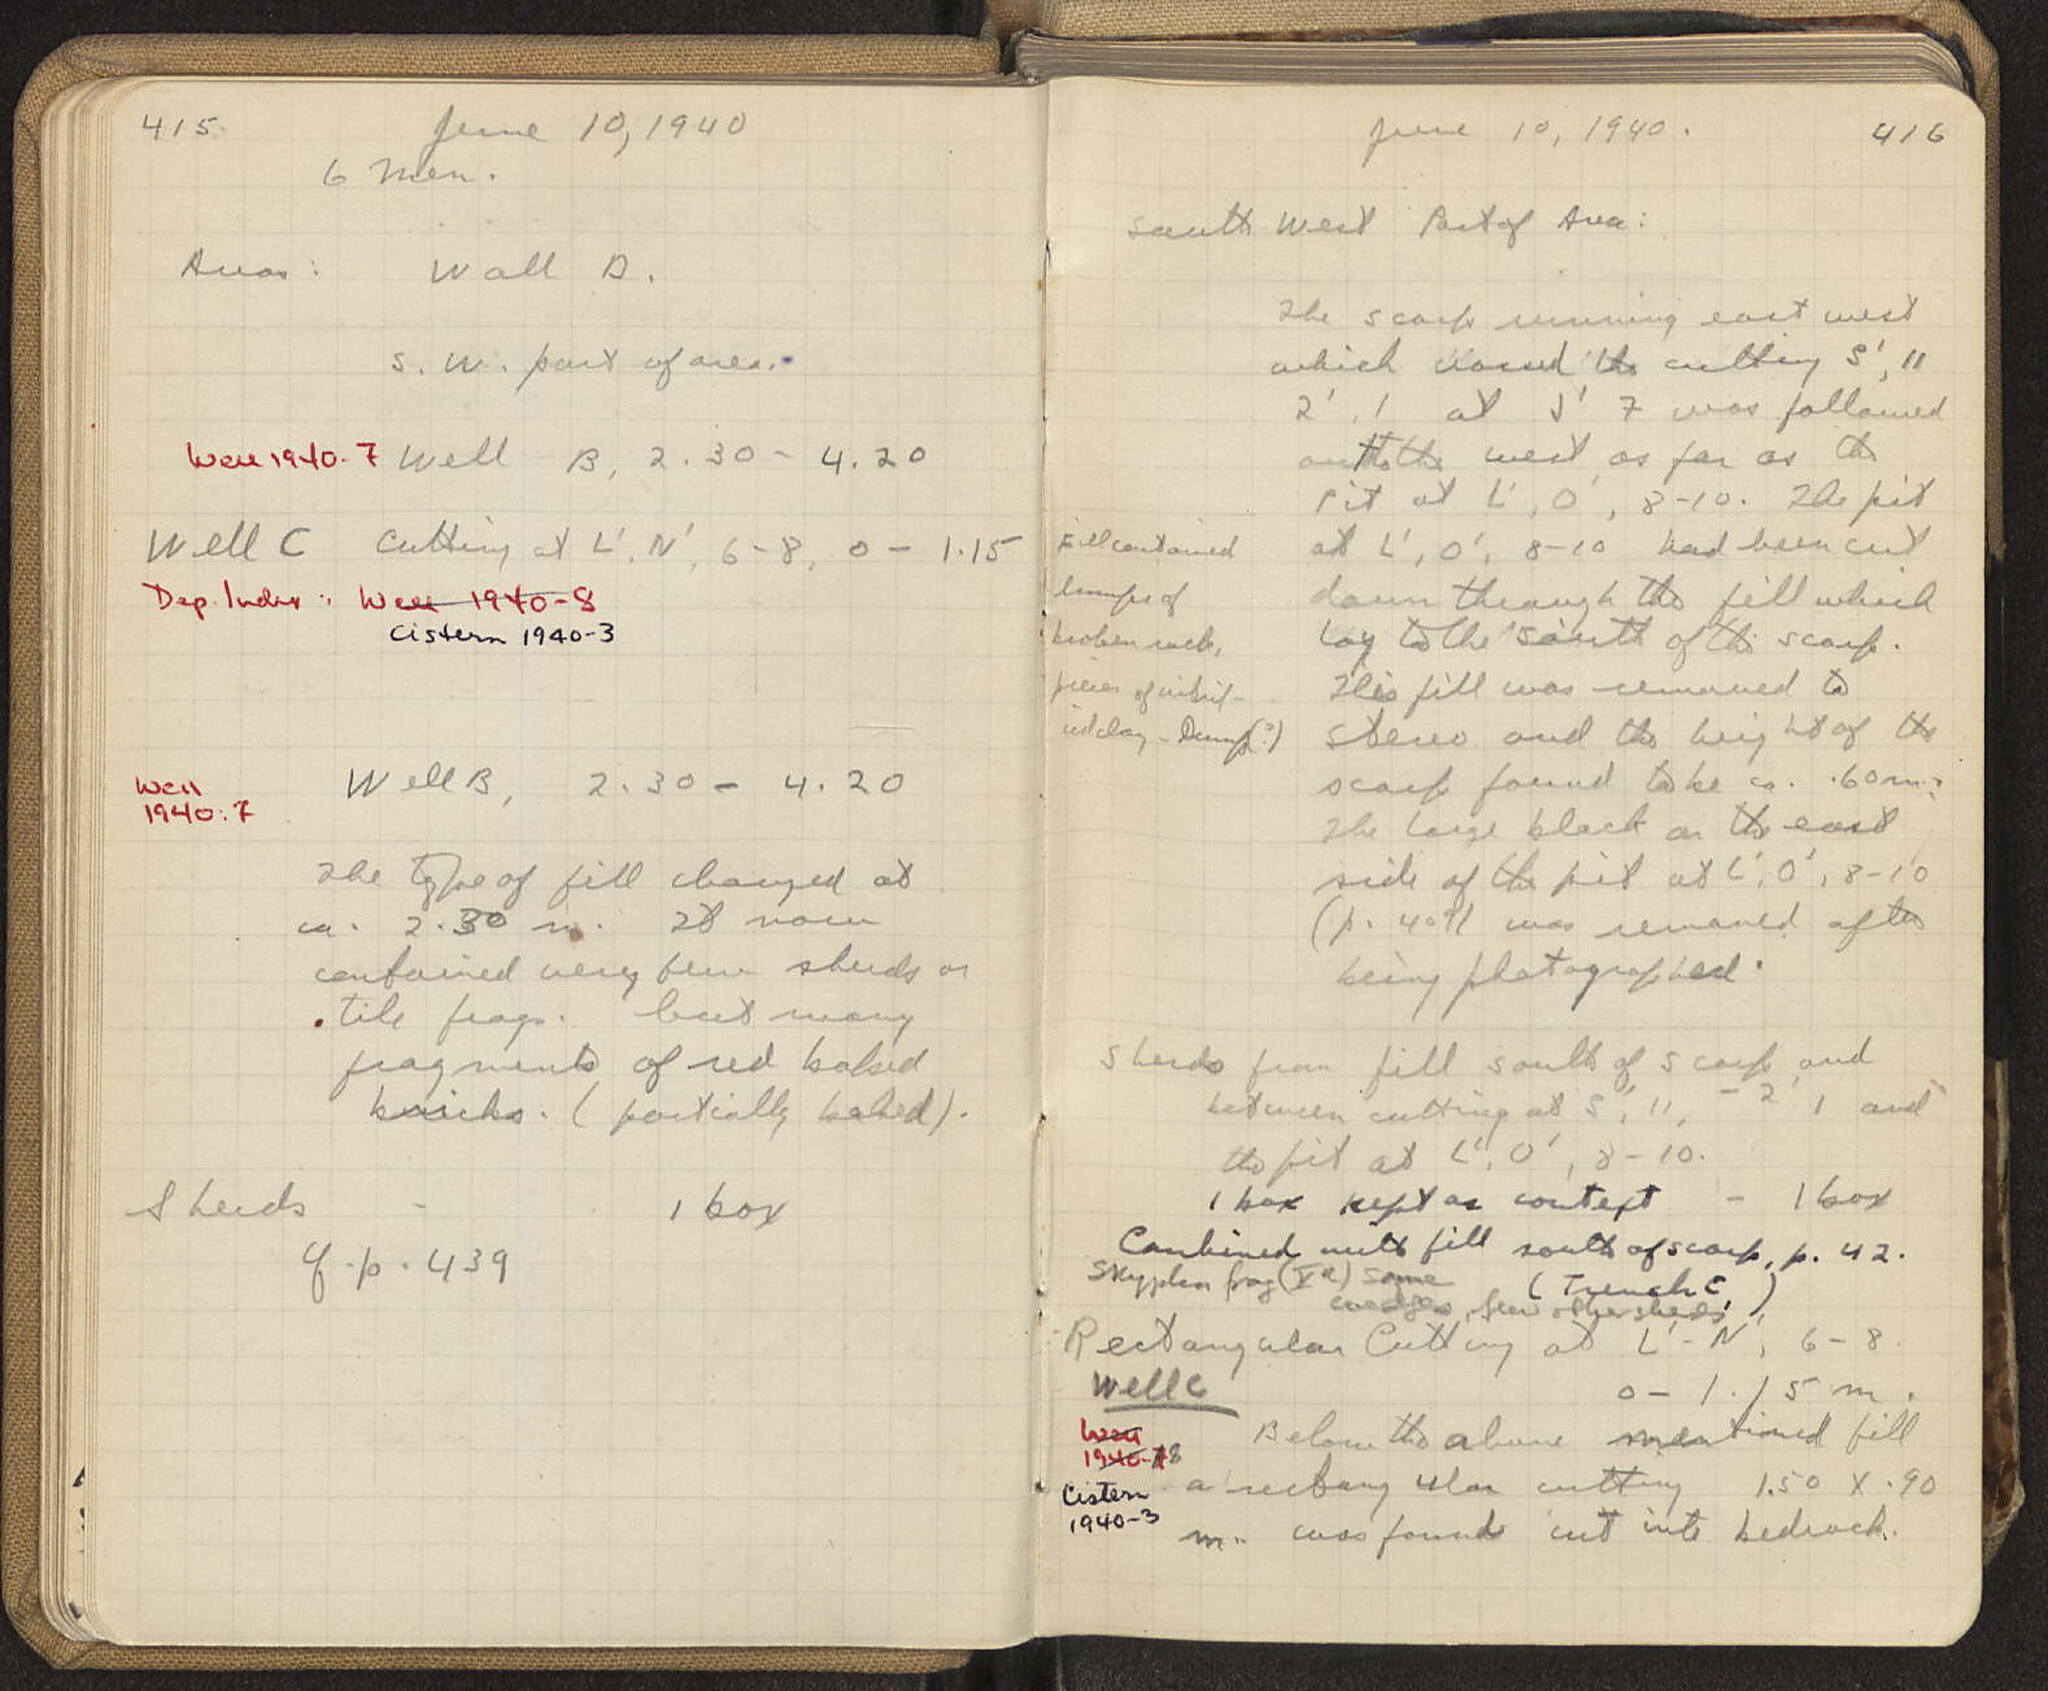 415
June 10, 1940
6 Men.
Areas: Wall D.
S. W. part of area.
Well 1940-7 Well B, 2.30 - 4.20
Well C Cutting at L', N', 6-8, 0 - 1.15
Dep. Index: Well 1940-8
Cistern 1940-3
Well
1940:7
Well B, 2.30 - 4.20
The type of fill changed at
ca. 2.30 m. It now
contained very few sherds or
tile frags. but many
fragments of red baked
bricks. (partially baked).
Sherds - 1 box
Cf. p. 439
June 10, 1940.
416
South West Part of Area:
The scarp running east west
which closed the cutting S', 11
2', 1 at J' 7 was followed
to the west as far as the
Pit at L', O', 8-10. The pit
at L', O', 8-10 had been cut
down through the fill which
lay to the south of the scarp.
This fill was removed to
stereo and the height of the
scarp found to be ca. .60 m.
The large block on the east
side of the pit at L', O', 8-10
(p. 409) was removed after
being photographed.
Fill contained
lumps of
broken rock,
pieces of
red clay - Dump(?)
Sherds from fill south of scarp and
between cutting at S', 11, - 2' 1 and
the pit at L', O', 8-10.
1 box kept as context - 1 box
Combined with fill south of scarp, p. 42.
(Trench C)
Skyphos frag (V c) some
, few other sherds
Rectangular Cutting at L'-N', 6-8
Well C 0 - 1.15 m.
Below the above mentioned fill
a rectangular cutting 1.50 x .90
m. was found cut into bedrock.
Well
1940-8
Cistern
1940-3